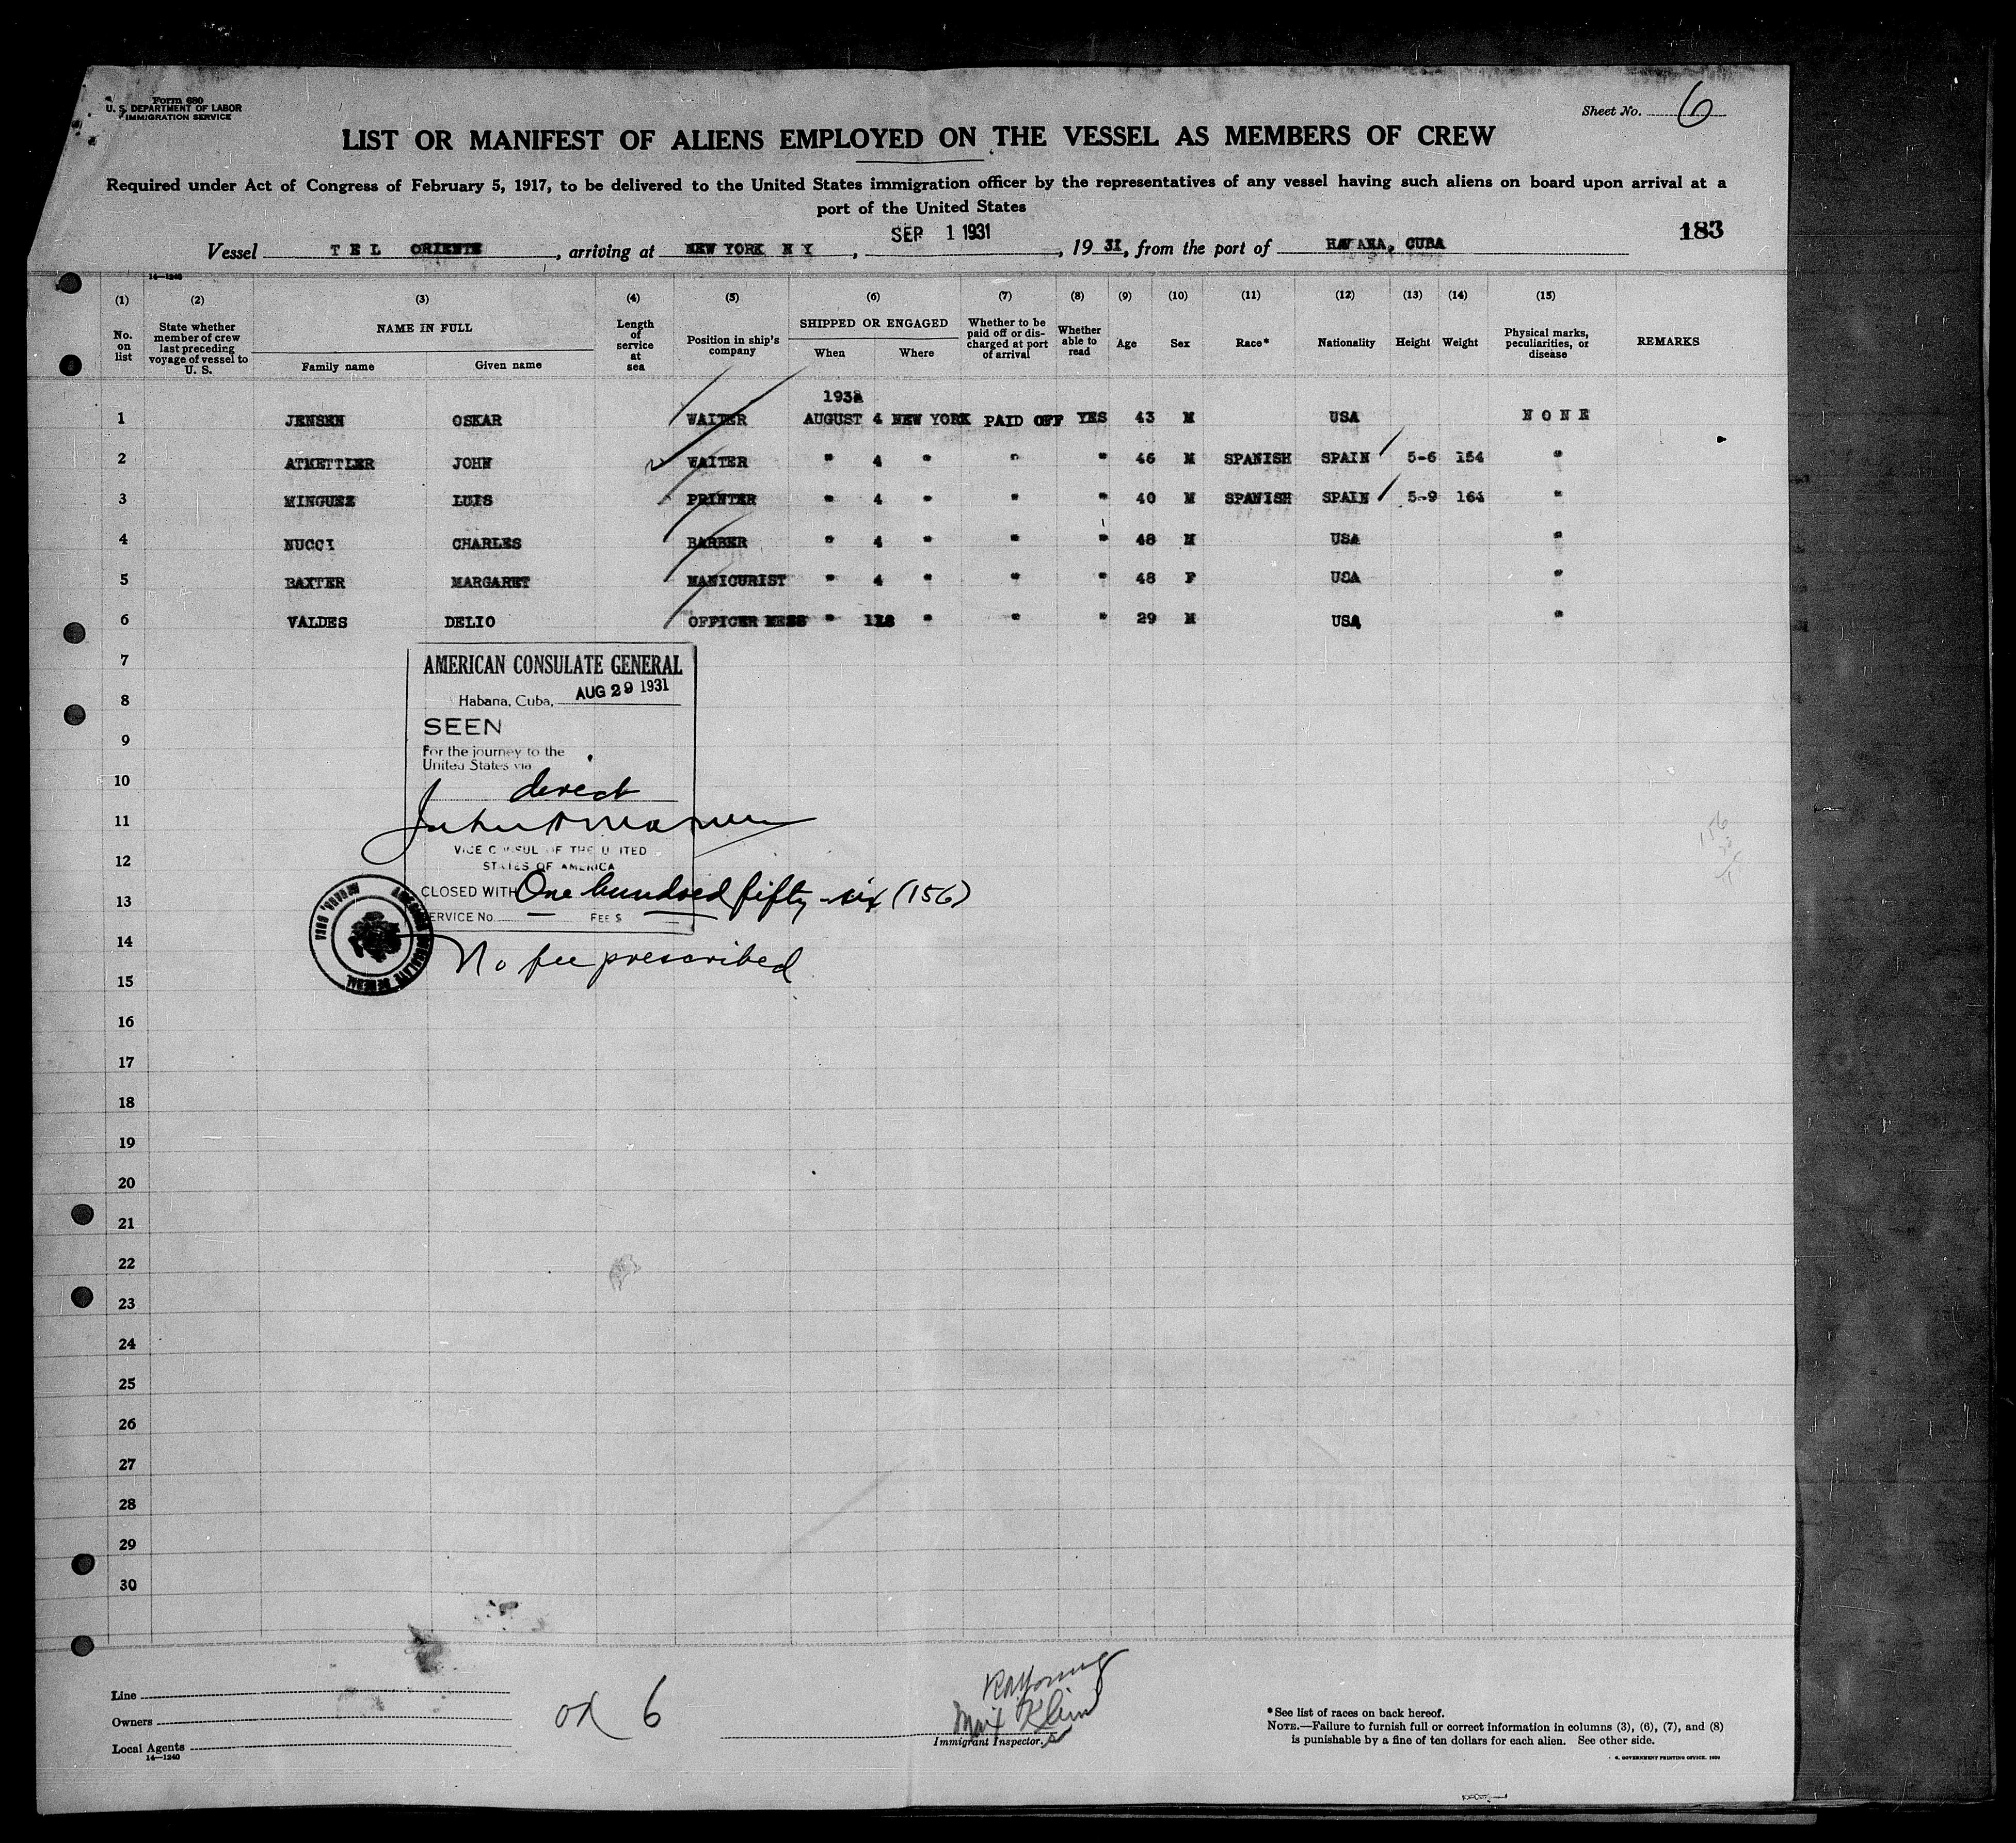 Form 680
U. S. DEPARTMENT OF LABOR
IMMIGRATION SERVICE
Sheet No. 6
LIST OR MANIFEST OF ALIENS EMPLOYED ON THE VESSEL AS MEMBERS OF CREW
Required under Act of Congress of February 5, 1917, to be delivered to the United States immigration officer by the representatives of any vessel having such aliens on board upon arrival at a
port of the United States
183
SEP 1 1931
Vessel T E L ORIENTE, arriving at NEW YORK N Y, , 19 31, from the port of HAVANA, CUBA
14—1240
(1) (2) (3) (4) (5) (6) (7) (8) (9) (10) (11) (12) (13) (14) (15)
No. on list
State whether member of crew last preceding voyage of vessel to U. S.
NAME IN FULL
Family name Given name
Length of service at sea
Position in ship's company
SHIPPED OR ENGAGED
When Where
Whether to be paid off or discharged at port of arrival
Whether able to read
Age Sex Race* Nationality Height Weight
Physical marks, peculiarities, or disease
REMARKS
1 JENSEN OSKAR WAITER AUGUST 4 NEW YORK PAID OFF YES 43 M USA N O N E
2 ATMETTLER JOHN WAITER " 4 " " " 46 M SPANISH SPAIN 5-6 154 "
3 MINGUEZ LUIS PRINTER " 4 " " " 40 M SPANISH SPAIN 5-9 164 "
4 NUCCI CHARLES BARBER " 4 " " " 48 M USA "
5 BAXTER MARGARET MANICURIST " 4 " " " 48 F USA "
6 VALDES DELIO OFFICER MESS " " " " 29 M USA "
7
AMERICAN CONSULATE GENERAL
8
Habana, Cuba, AUG 29 1931
SEEN
9
For the journey to the
United States via
10
direct
11
VICE CONSUL OF THE UNITED
12
STATES OF AMERICA
156
CLOSED WITH One hundred fifty-six (156)
13
SERVICE No. — FEE $ —
AMERICAN CONSULATE GENERAL
HABANA, CUBA
14
No fee prescribed
15
16
17
18
19
20
21
22
23
24
25
26
27
28
29
30
Line
Owners
Local Agents
14—1240
6
Max Klein
Immigrant Inspector.
*See list of races on back hereof.
NOTE.—Failure to furnish full or correct information in columns (3), (6), (7), and (8)
is punishable by a fine of ten dollars for each alien. See other side.